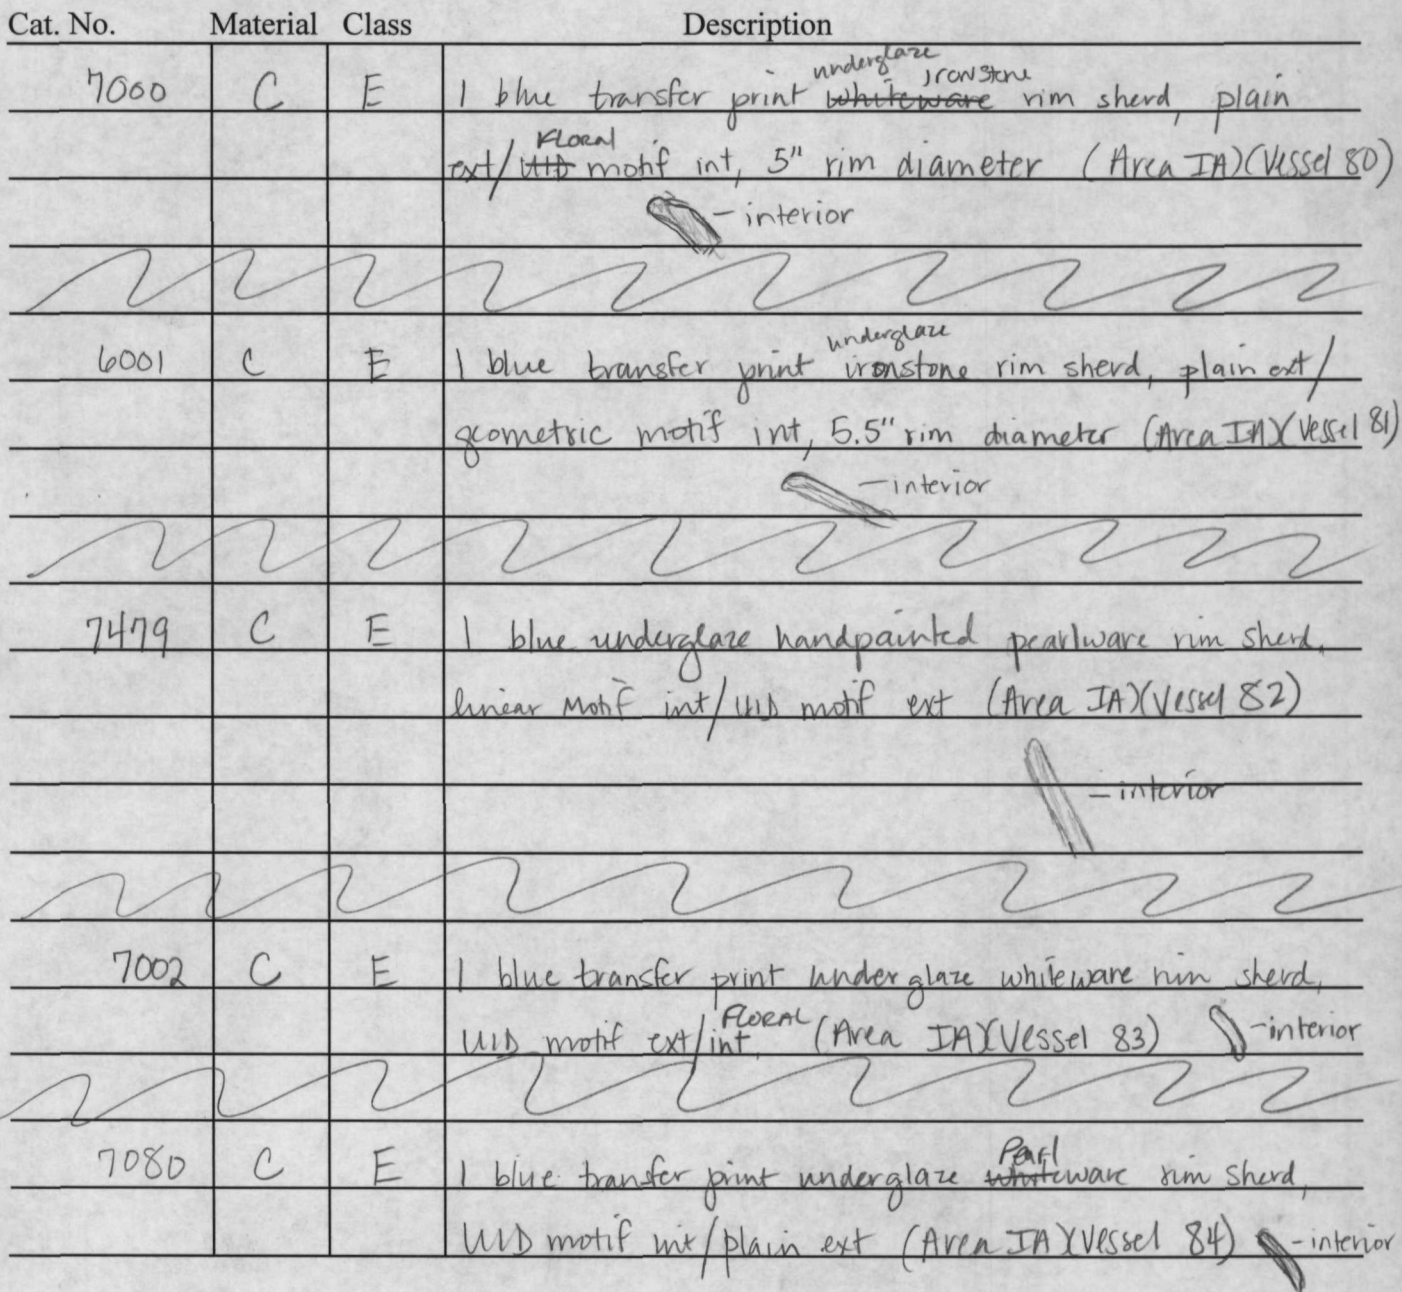 Cat. No. Material Class Description
underglaze
ironstone
7000 C E 1 blue transfer print whiteware rim sherd, plain
FLORAL
ext/UID motif int, 5" rim diameter (Area IA)(Vessel 80)
-interior
underglaze
6001 C E 1 blue transfer print ironstone rim sherd, plain ext/
geometric motif int, 5.5" rim diameter (Area IA)(Vessel 81)
-interior
7479 C E 1 blue underglaze handpainted pearlware rim sherd,
linear motif int/UID motif ext (Area IA)(Vessel 82)
-interior
7002 C E 1 blue transfer print underglaze whiteware rim sherd,
FLORAL
UID motif ext/int, (Area IA)(Vessel 83) -interior
Pearl
7080 C E 1 blue transfer print underglaze whiteware rim sherd,
UID motif int/plain ext (Area IA)(Vessel 84) -interior